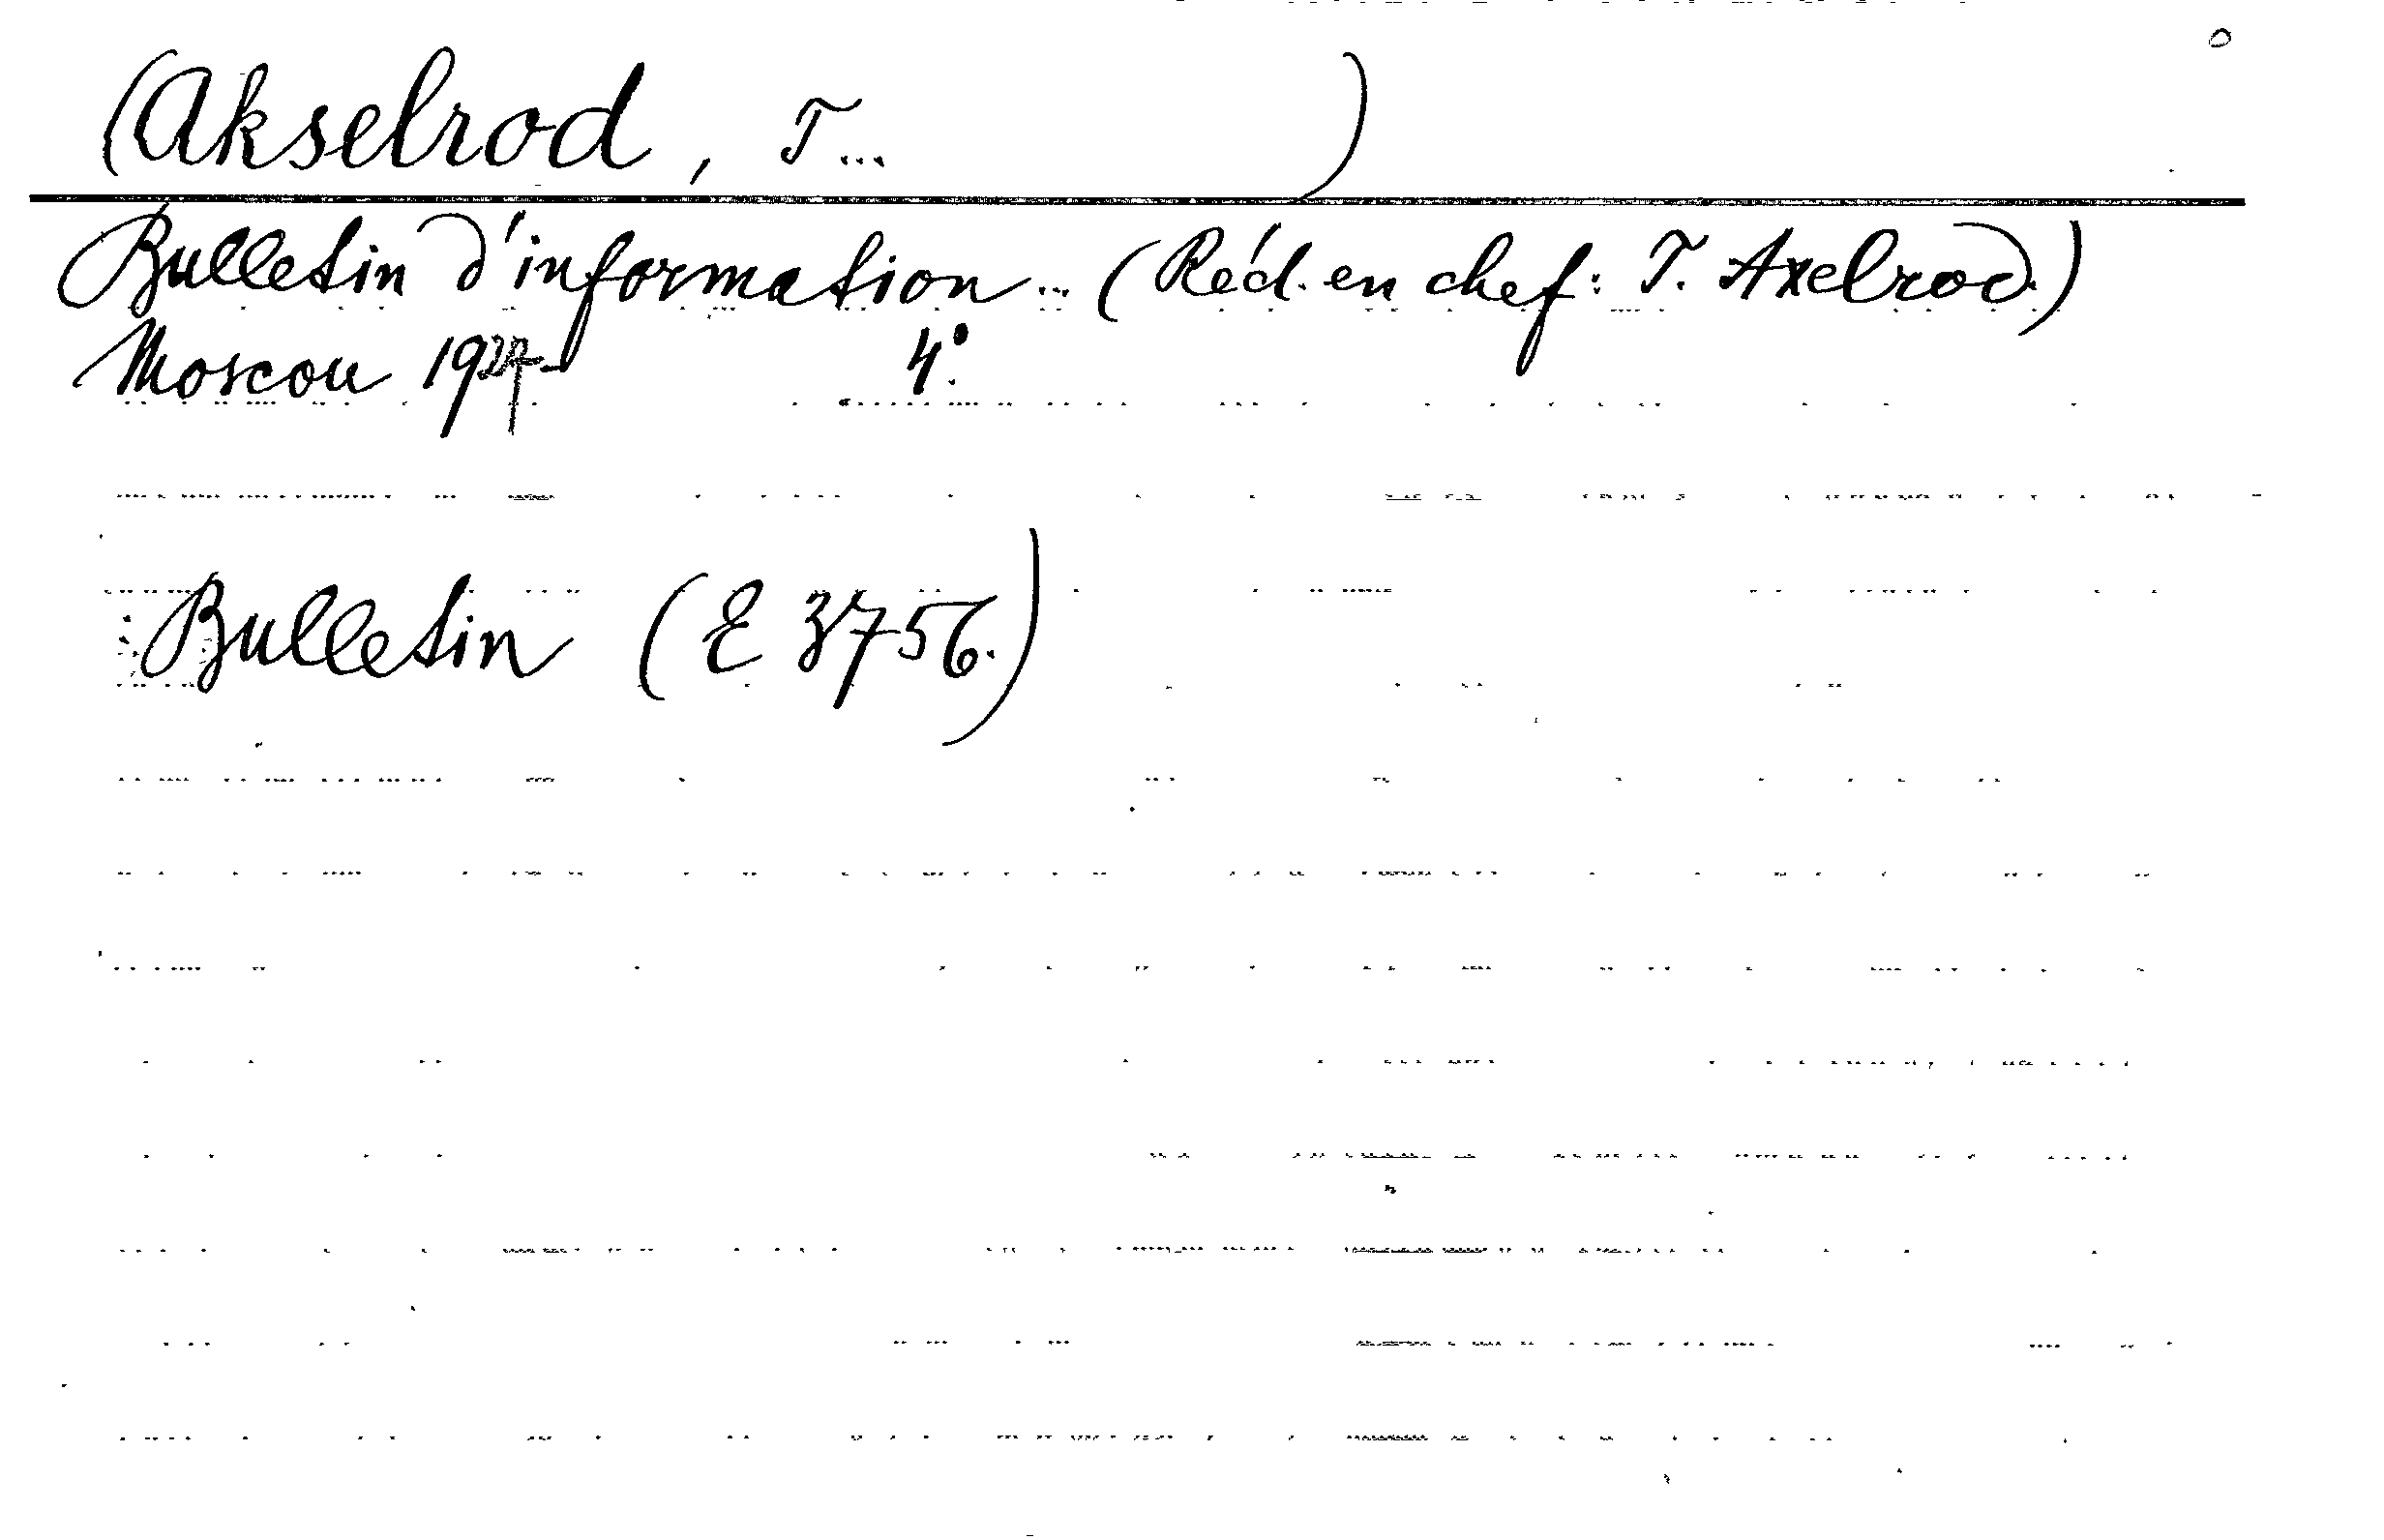 (Akselrod, T... )
Bulletin d'information... (Réd. en chef: T. Axelrod.)
Moscou 1927- 4°.
Bulletin (E 3756.)